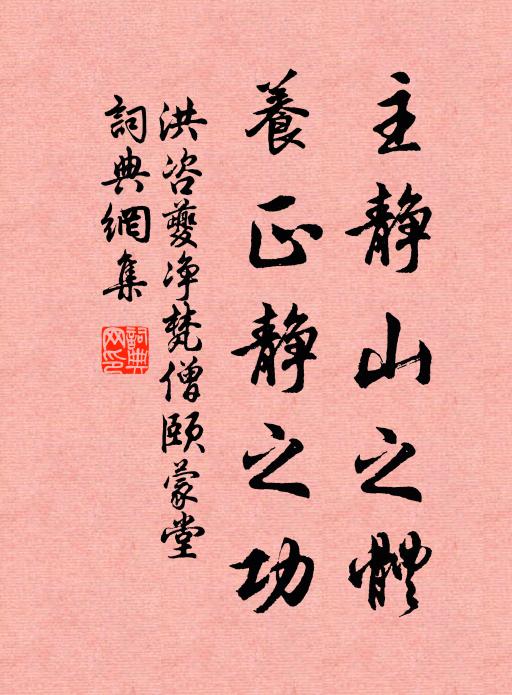 主靜山之體
養正靜之功
洪咨夔淨梵僧頤蒙堂
詞典網集
詞典網印